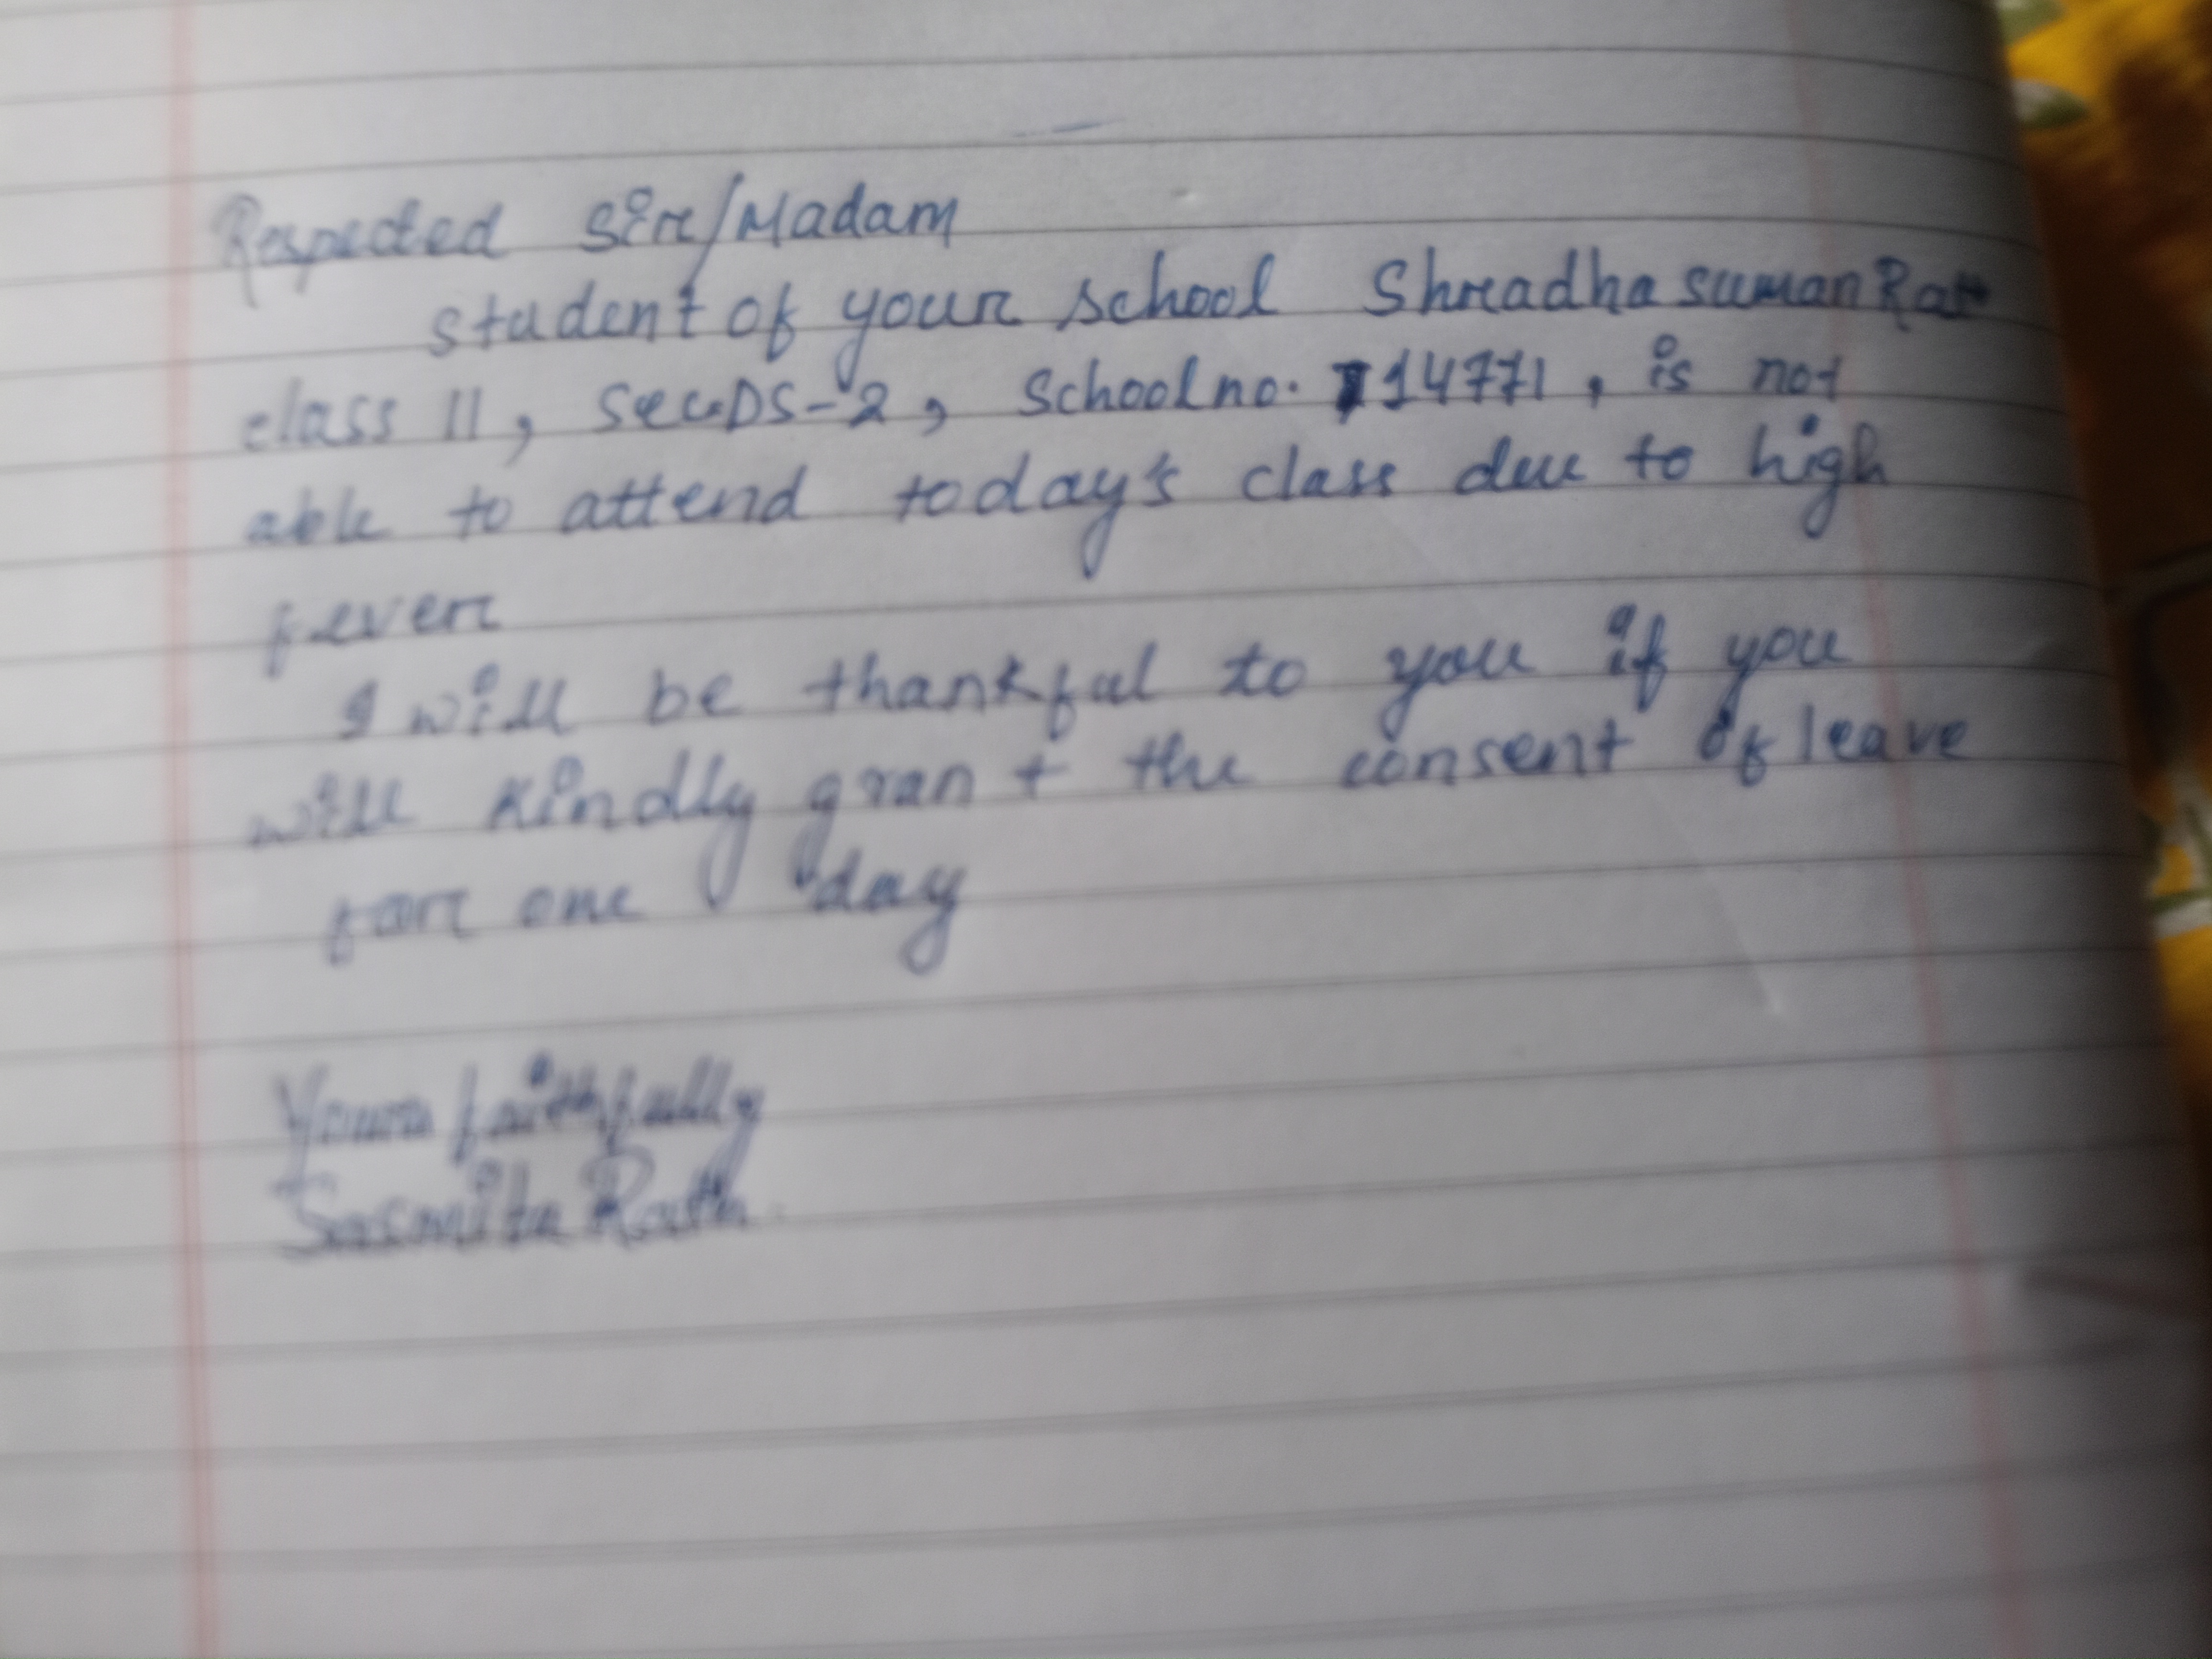 Respected Sir/Madam
student of your school Shradha suman Rath
class 11, Sec.DS-2, School no. 14771, is not
able to attend today's class due to high
fever
I will be thankful to you if you
will kindly grant the consent of leave
for one day
Yours faithfully
Sasmita Rath